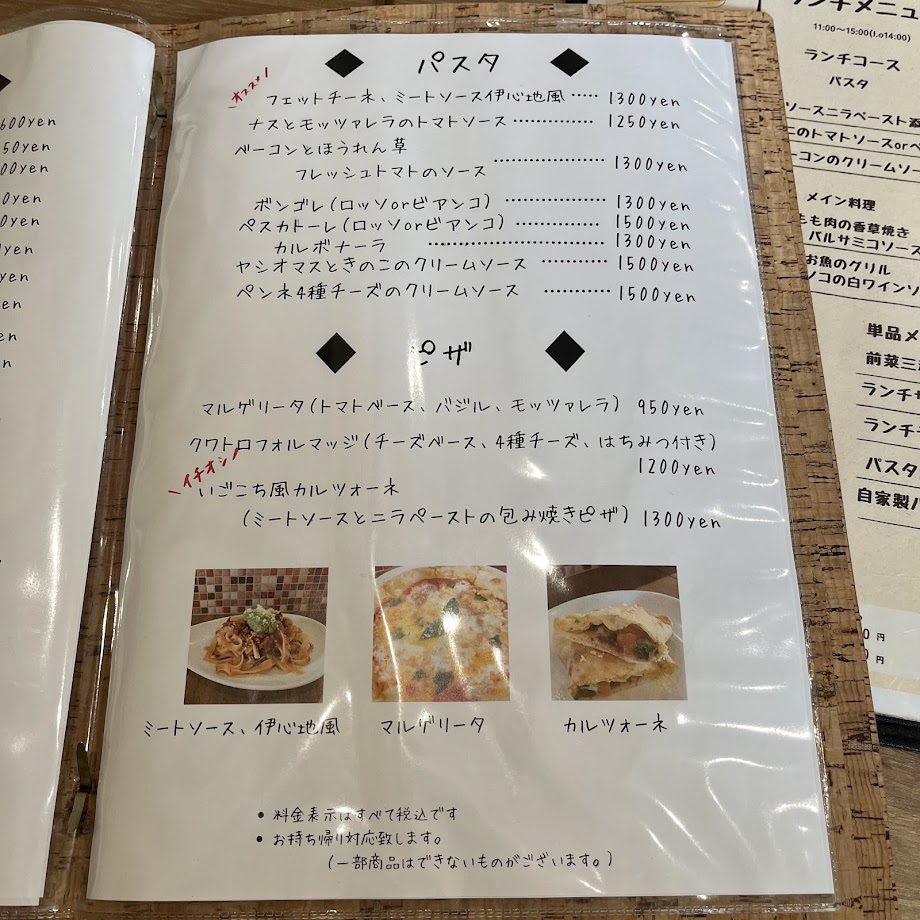 600yen
50yen
00yen
0yen
0yen
yen
yen
en
en
n
パスタ
オススメ!
フェットチーネ、ミートソース伊心地風 …… 1300yen
ナスとモッツァレラのトマトソース ………… 1250yen
ベーコンとほうれん草
フレッシュトマトのソース ………… 1300yen
ボンゴレ(ロッソorビアンコ) ………… 1300yen
ペスカトーレ(ロッソorビアンコ) ………… 1500yen
カルボナーラ ………… 1300yen
ヤシオマスときのこのクリームソース ………… 1500yen
ペンネ4種チーズのクリームソース ………… 1500yen
ピザ
マルゲリータ(トマトベース、バジル、モッツァレラ) 950yen
クワトロフォルマッジ(チーズベース、4種チーズ、はちみつ付き)
1200yen
イチオシ!
いごこち風カルツォーネ
(ミートソースとニラペーストの包み焼きピザ) 1300yen
ミートソース、伊心地風
マルゲリータ
カルツォーネ
• 料金表示はすべて税込です
• お持ち帰り対応致します。
(一部商品はできないものがございます。)
ランチメニュ
11:00〜15:00(l.o14:00)
ランチコース
パスタ
ソースニラペースト添
このトマトソースorペ
ーコンのクリームソー
メイン料理
もも肉の香草焼き
バルサミコソース
お魚のグリル
ノコの白ワインソ
単品メ
前菜三
ランチサ
ランチ
パスタ
自家製パ
0 円
0 円